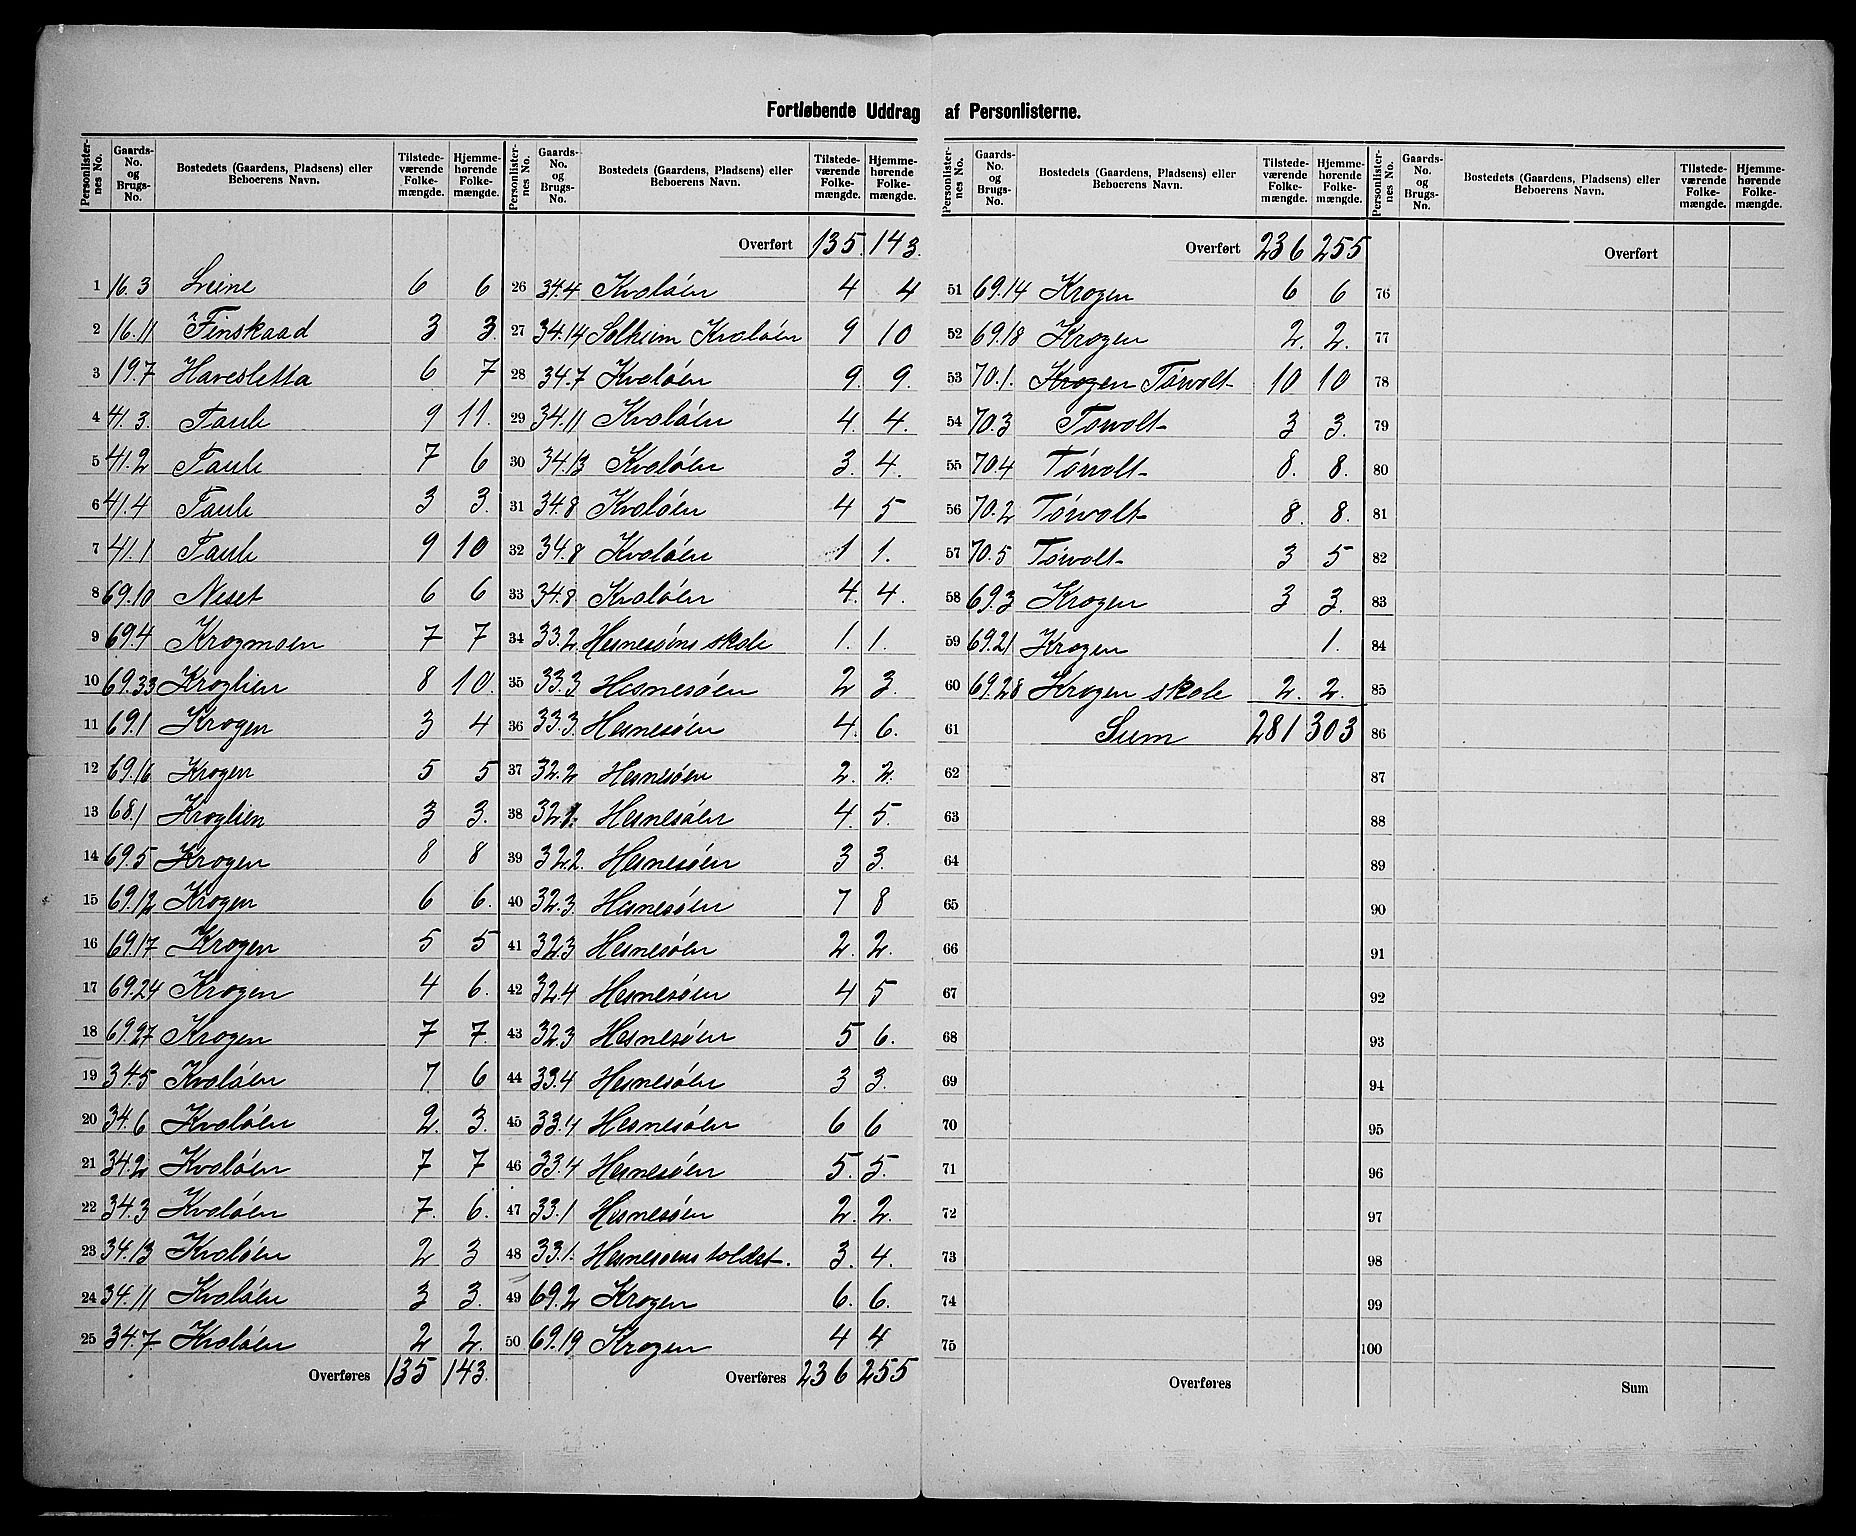 Fortløbende Uddrag af Personlisterne.
Personlisternes No. | Gaards-No. og Brugs-No. | Bostedets (Gaardens, Pladsens) eller Beboerens Navn. | Tilstedeværende Folkemængde. | Hjemmehørende Folkemængde.
1 16.3 Leine 6 6
2 16.11 Finskaad 3 3.
3 19.7 Havesletta 6 7
4 41.3. Taule 9 11.
5 41.2 Taule 7 6
6 41.4 Taule 3 3.
7 41.1 Taule 9 10
8 69.10 Neset 6 6
9 69.4 Krogmoen 7 7
10 69.33 Kroglien 8 10.
11 69.1 Krogen 3 4
12 69.16 Krogen 5 5
13 68.1 Kroglien 3 3.
14 69.5 Krogen 8 8
15 69.12 Krogen 6 6.
16 69.17 Krogen 5 5
17 69.24 Krogen 4 6.
18 69.27 Krogen 7 7.
19 34.5 Kvaløen 7 6
20 34.6 Kvaløen 2. 3.
21 34.2 Kvaløen 7 7
22 34.3 Kvaløen 7. 6.
23 34.13 Kvaløen 2 3
24 34.11 Kvaløen 3 3.
25 34.7 Kvaløen 2 2.
Overføres 135 143.
Personlisternes No. | Gaards-No. og Brugs-No. | Bostedets (Gaardens, Pladsens) eller Beboerens Navn. | Tilstedeværende Folkemængde. | Hjemmehørende Folkemængde.
Overført 135. 143.
26 34.4 Kvaløen 4 4
27 34.14 Solheim Kvaløen 9 10
28 34.7 Kvaløen 9. 9.
29 34.11 Kvaløen 4. 4.
30 34.13 Kvaløen 3. 4.
31 34.8 Kvaløen 4 5
32 34.8 Kvaløen 1 1.
33 34.8 Kvaløen 4. 4.
34 33.2 Hesnesøens skole 1. 1.
35 33.3 Hesnesøen 2 3.
36 33.3. Hesnesøen 4. 6.
37 32.2 Hesnesøen 2. 2.
38 32.1. Hesnesøen 4. 5.
39 32.2. Hesnesøen 3 3.
40 32.3 Hesnesøen 7 8
41 32.3 Hesnesøen 2. 2.
42 32.4 Hesnesøen 4 5
43 32.3 Hesnesøen 5 6.
44 33.4 Hesnesøen 3 3.
45 33.4 Hesnesøen 6 6
46 33.4 Hesnesøen 5. 5.
47 33.1 Hesnesøen 2. 2.
48 33.1. Hesnesøens toldst. 3. 4.
49 69.2 Krogen 6. 6.
50 69.19 Krogen 4 4
Overføres 236 255
Personlisternes No. | Gaards-No. og Brugs-No. | Bostedets (Gaardens, Pladsens) eller Beboerens Navn. | Tilstedeværende Folkemængde. | Hjemmehørende Folkemængde.
Overført 236 255
51 69.14 Krogen 6 6
52 69.18 Krogen 2. 2.
53 70.1. Krogen Tørvolt 10 10
54 70.3 Tørvolt 3 3.
55 70.4 Tørvolt 8. 8.
56 70.2 Tørvolt 8. 8.
57 70.5 Tørvolt 3 5
58 69.3 Krogen 3 3.
59 69.21 Krogen 1.
60 69.28 Krogen skole 2. 2.
61 Sum 281 303
62
63
64
65
66
67
68
69
70
71
72
73
74
75
Overføres
Personlisternes No. | Gaards-No. og Brugs-No. | Bostedets (Gaardens, Pladsens) eller Beboerens Navn. | Tilstedeværende Folkemængde. | Hjemmehørende Folkemængde.
Overført
76
77
78
79
80
81
82
83
84
85
86
87
88
89
90
91
92
93
94
95
96
97
98
99
100
Sum